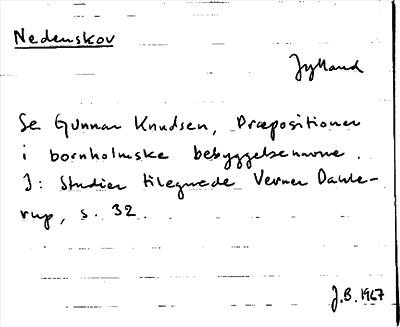 Nedenskov
Jylland
Se Gunnar Knudsen, Præpositioner
i bornholmske bebyggelsenavne.
I: Studier tilegnede Verner Dahle-
rup, s. 32.
J.B. 1967